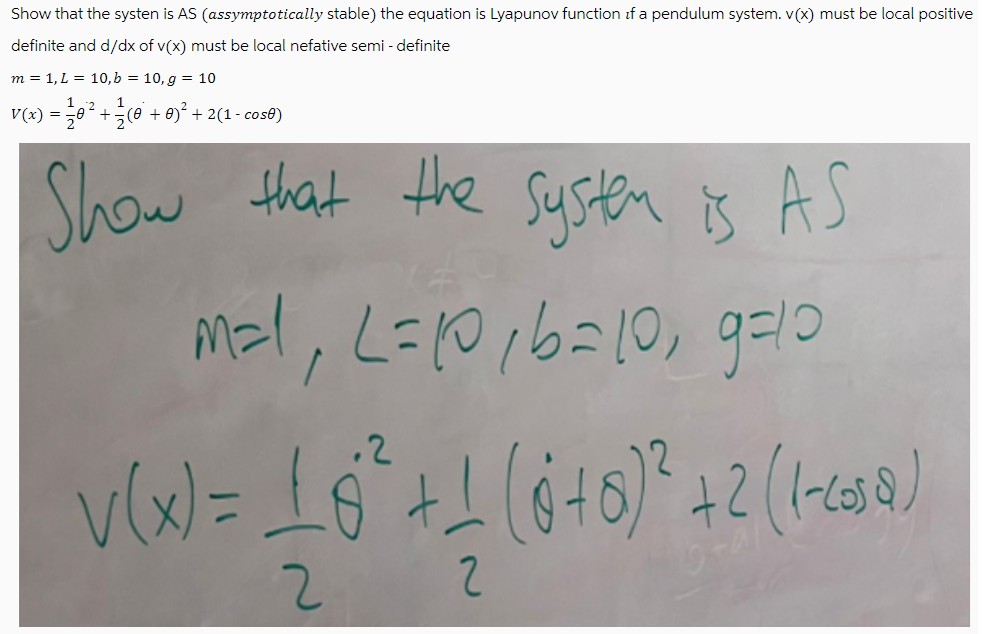 Show that the systen is AS (assymptotically stable) the equation is Lyapunov function ıf a pendulum system. v(x) must be local positive
definite and d/dx of v(x) must be local nefative semi - definite
m = 1, L = 10, b = 10, g = 10
V(x) = 1/2 θ̇² + 1/2 (θ̇ + θ)² + 2(1 - cosθ)
Show that the system is AS
m=1, L=10, b=10, g=10
v(x) = 1/2 θ̇² + 1/2 (θ̇+θ)² + 2(1-cosθ)